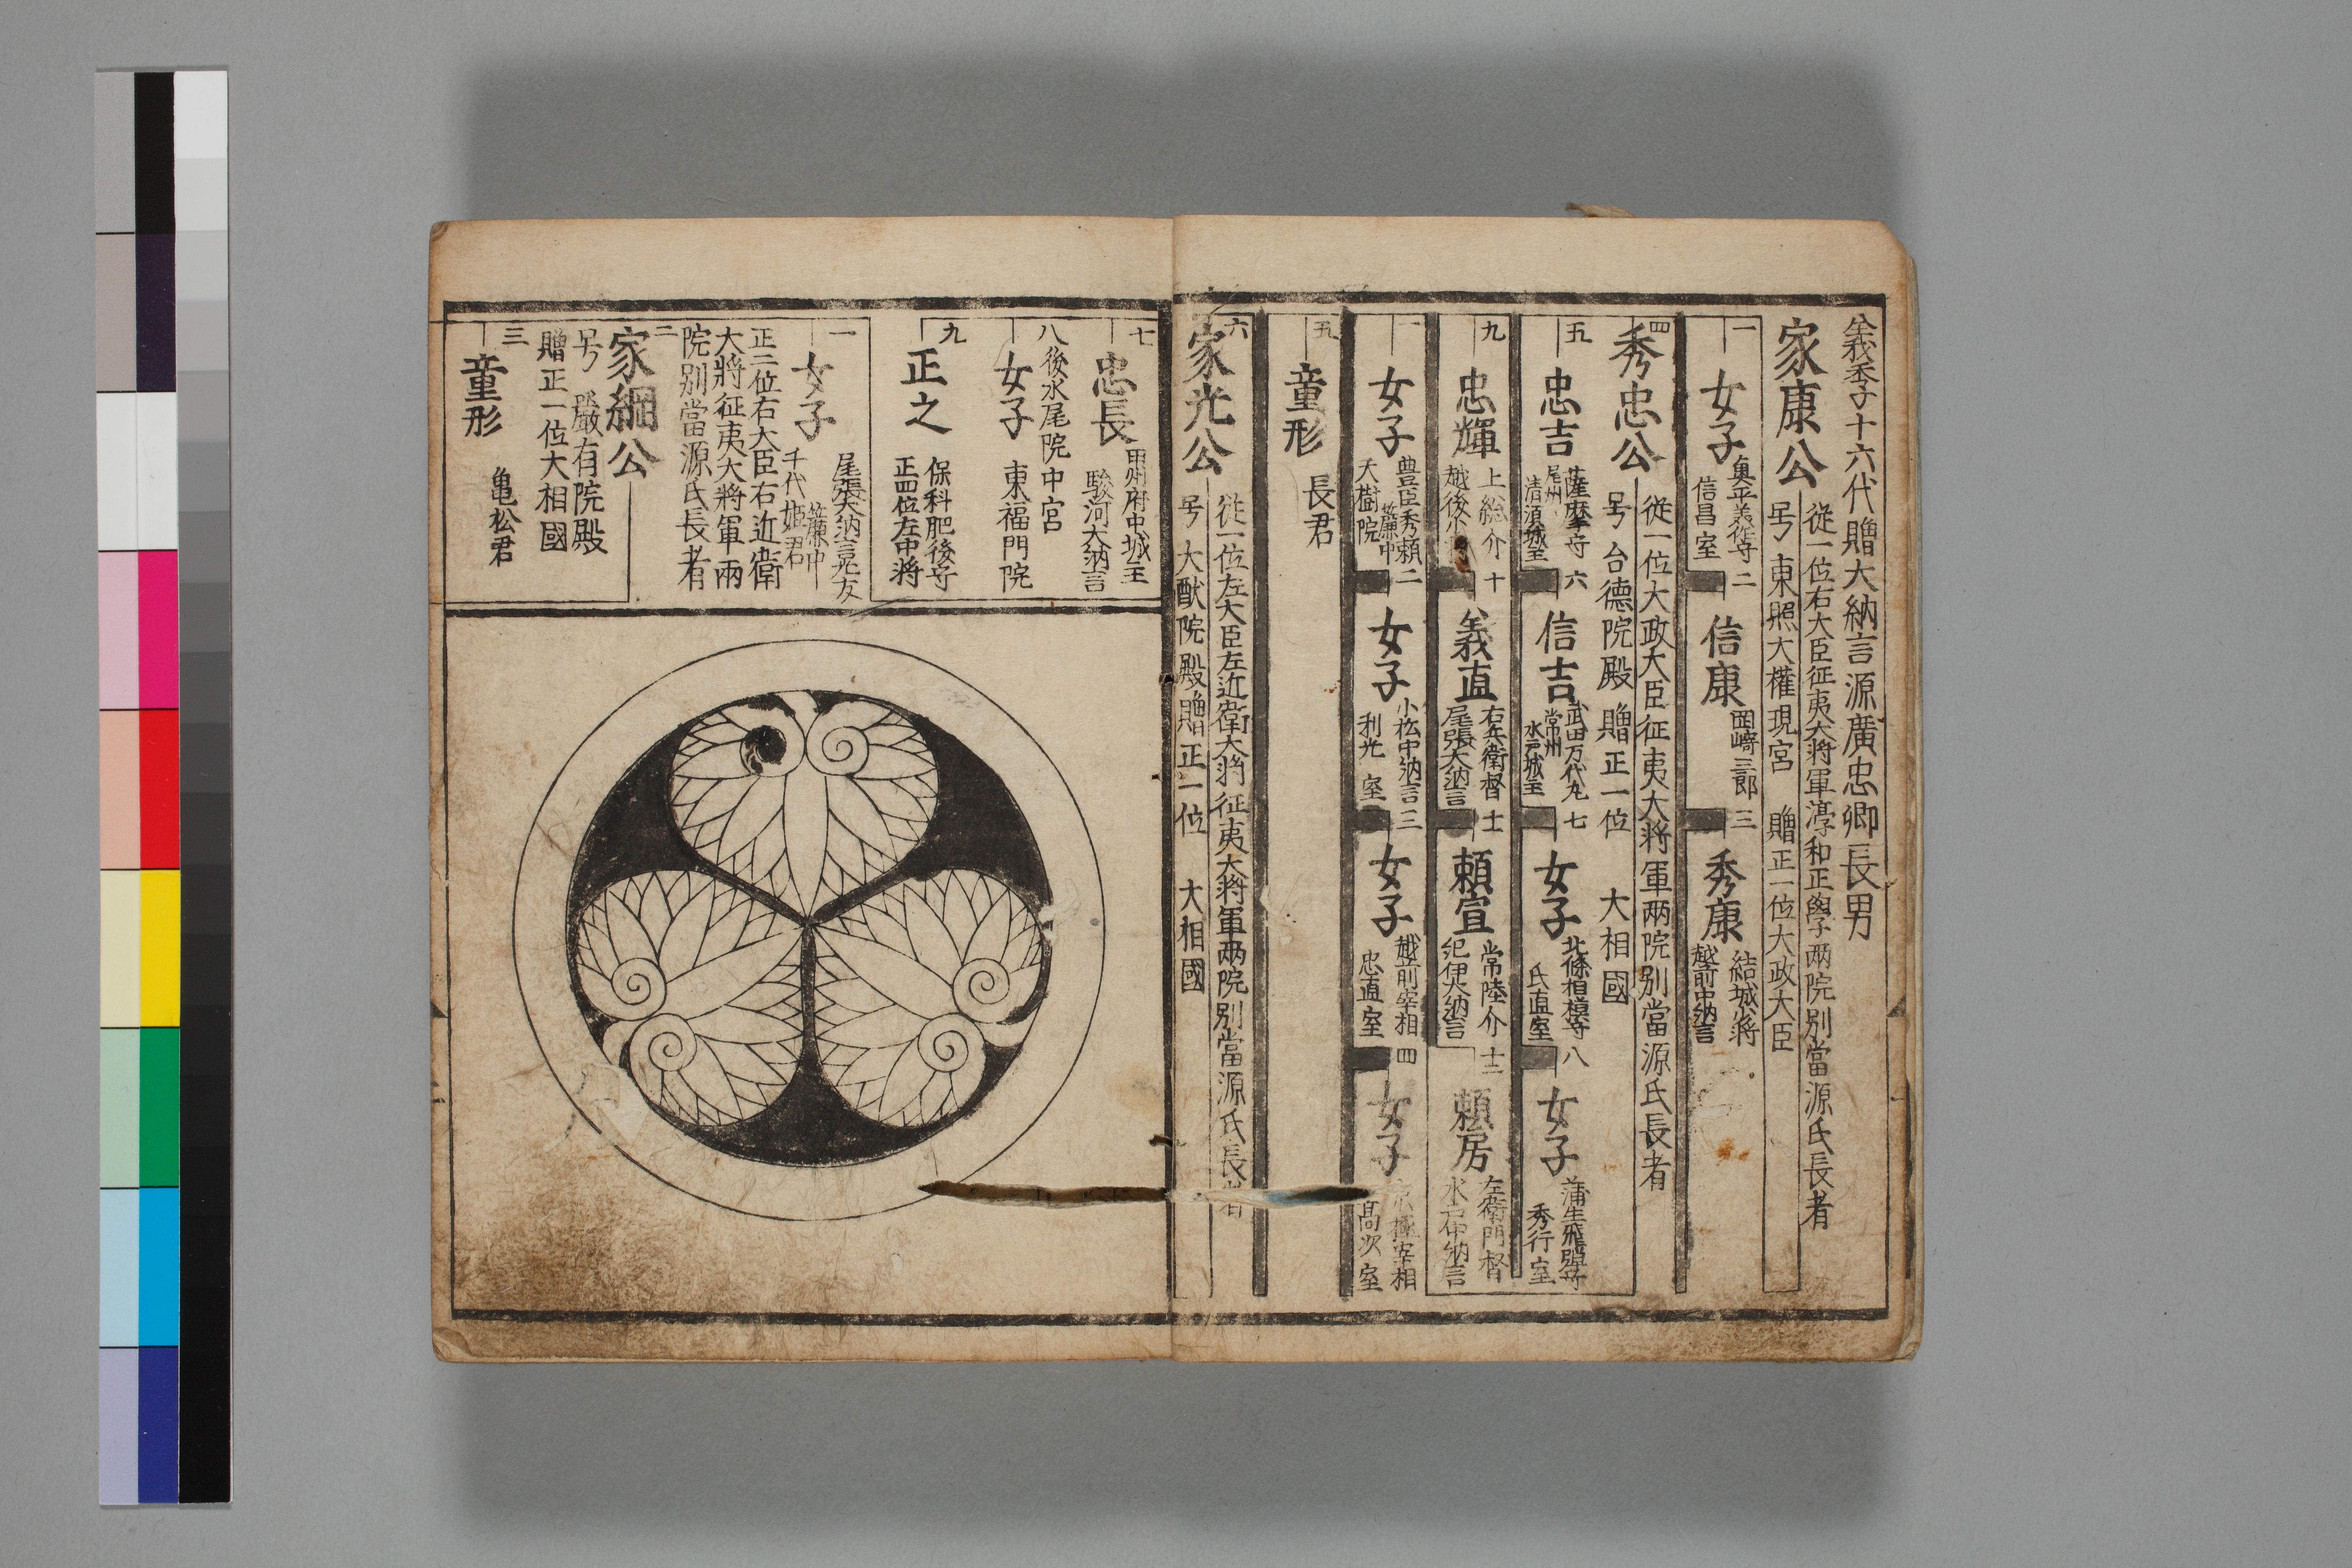 義季子十六代贈大納言源廣忠卿長男
家康公
従一位右大臣征夷大将軍淳和正學両院別當源氏長者
号 東照大權現宮 贈正一位大政大臣
一
女子
奥平美作守
信昌室
二
信康
岡崎三郎
三
秀康
結城少将
越前中納言
四
秀忠公
従一位大政大臣征夷大将軍両院別當源氏長者
号 台德院殿 贈正一位 大相國
五
忠吉
薩摩守
尾州
清須城主
六
信吉
武田万代丸
常州
水戸城主
七
女子
北條相模守
氏直室
八
女子
蒲生飛騨守
秀行室
九
忠輝
上総介
越後少
十
義直
右兵衛督
尾張大納言
十一
頼宣
常陸介
紀伊大納言
十二
頼房
左衛門督
水戸中納言
一
女子
豊臣秀頼
簾中
天樹院
二
女子
小松中納言
利光 室
三
女子
越前宰相
忠直室
四
女子
京極宰相
高次 室
五
童形
長君
六
家光公
従一位左大臣左近衛大将征夷大将軍両院別當源氏長者
号 大猷院殿贈正一位 大相國
七
忠長
甲州府中城主
駿河大納言
八
後水尾院中宮
女子
東福門院
九
正之
保科肥後守
正四位左中将
一
女子
尾張大納言光友
簾中
千代姫君
正二位右大臣右近衛
大將征夷大將軍兩
院別當源氏長者
二
家綱公
号 嚴有院殿
贈正一位大相國
三
童形
亀松君